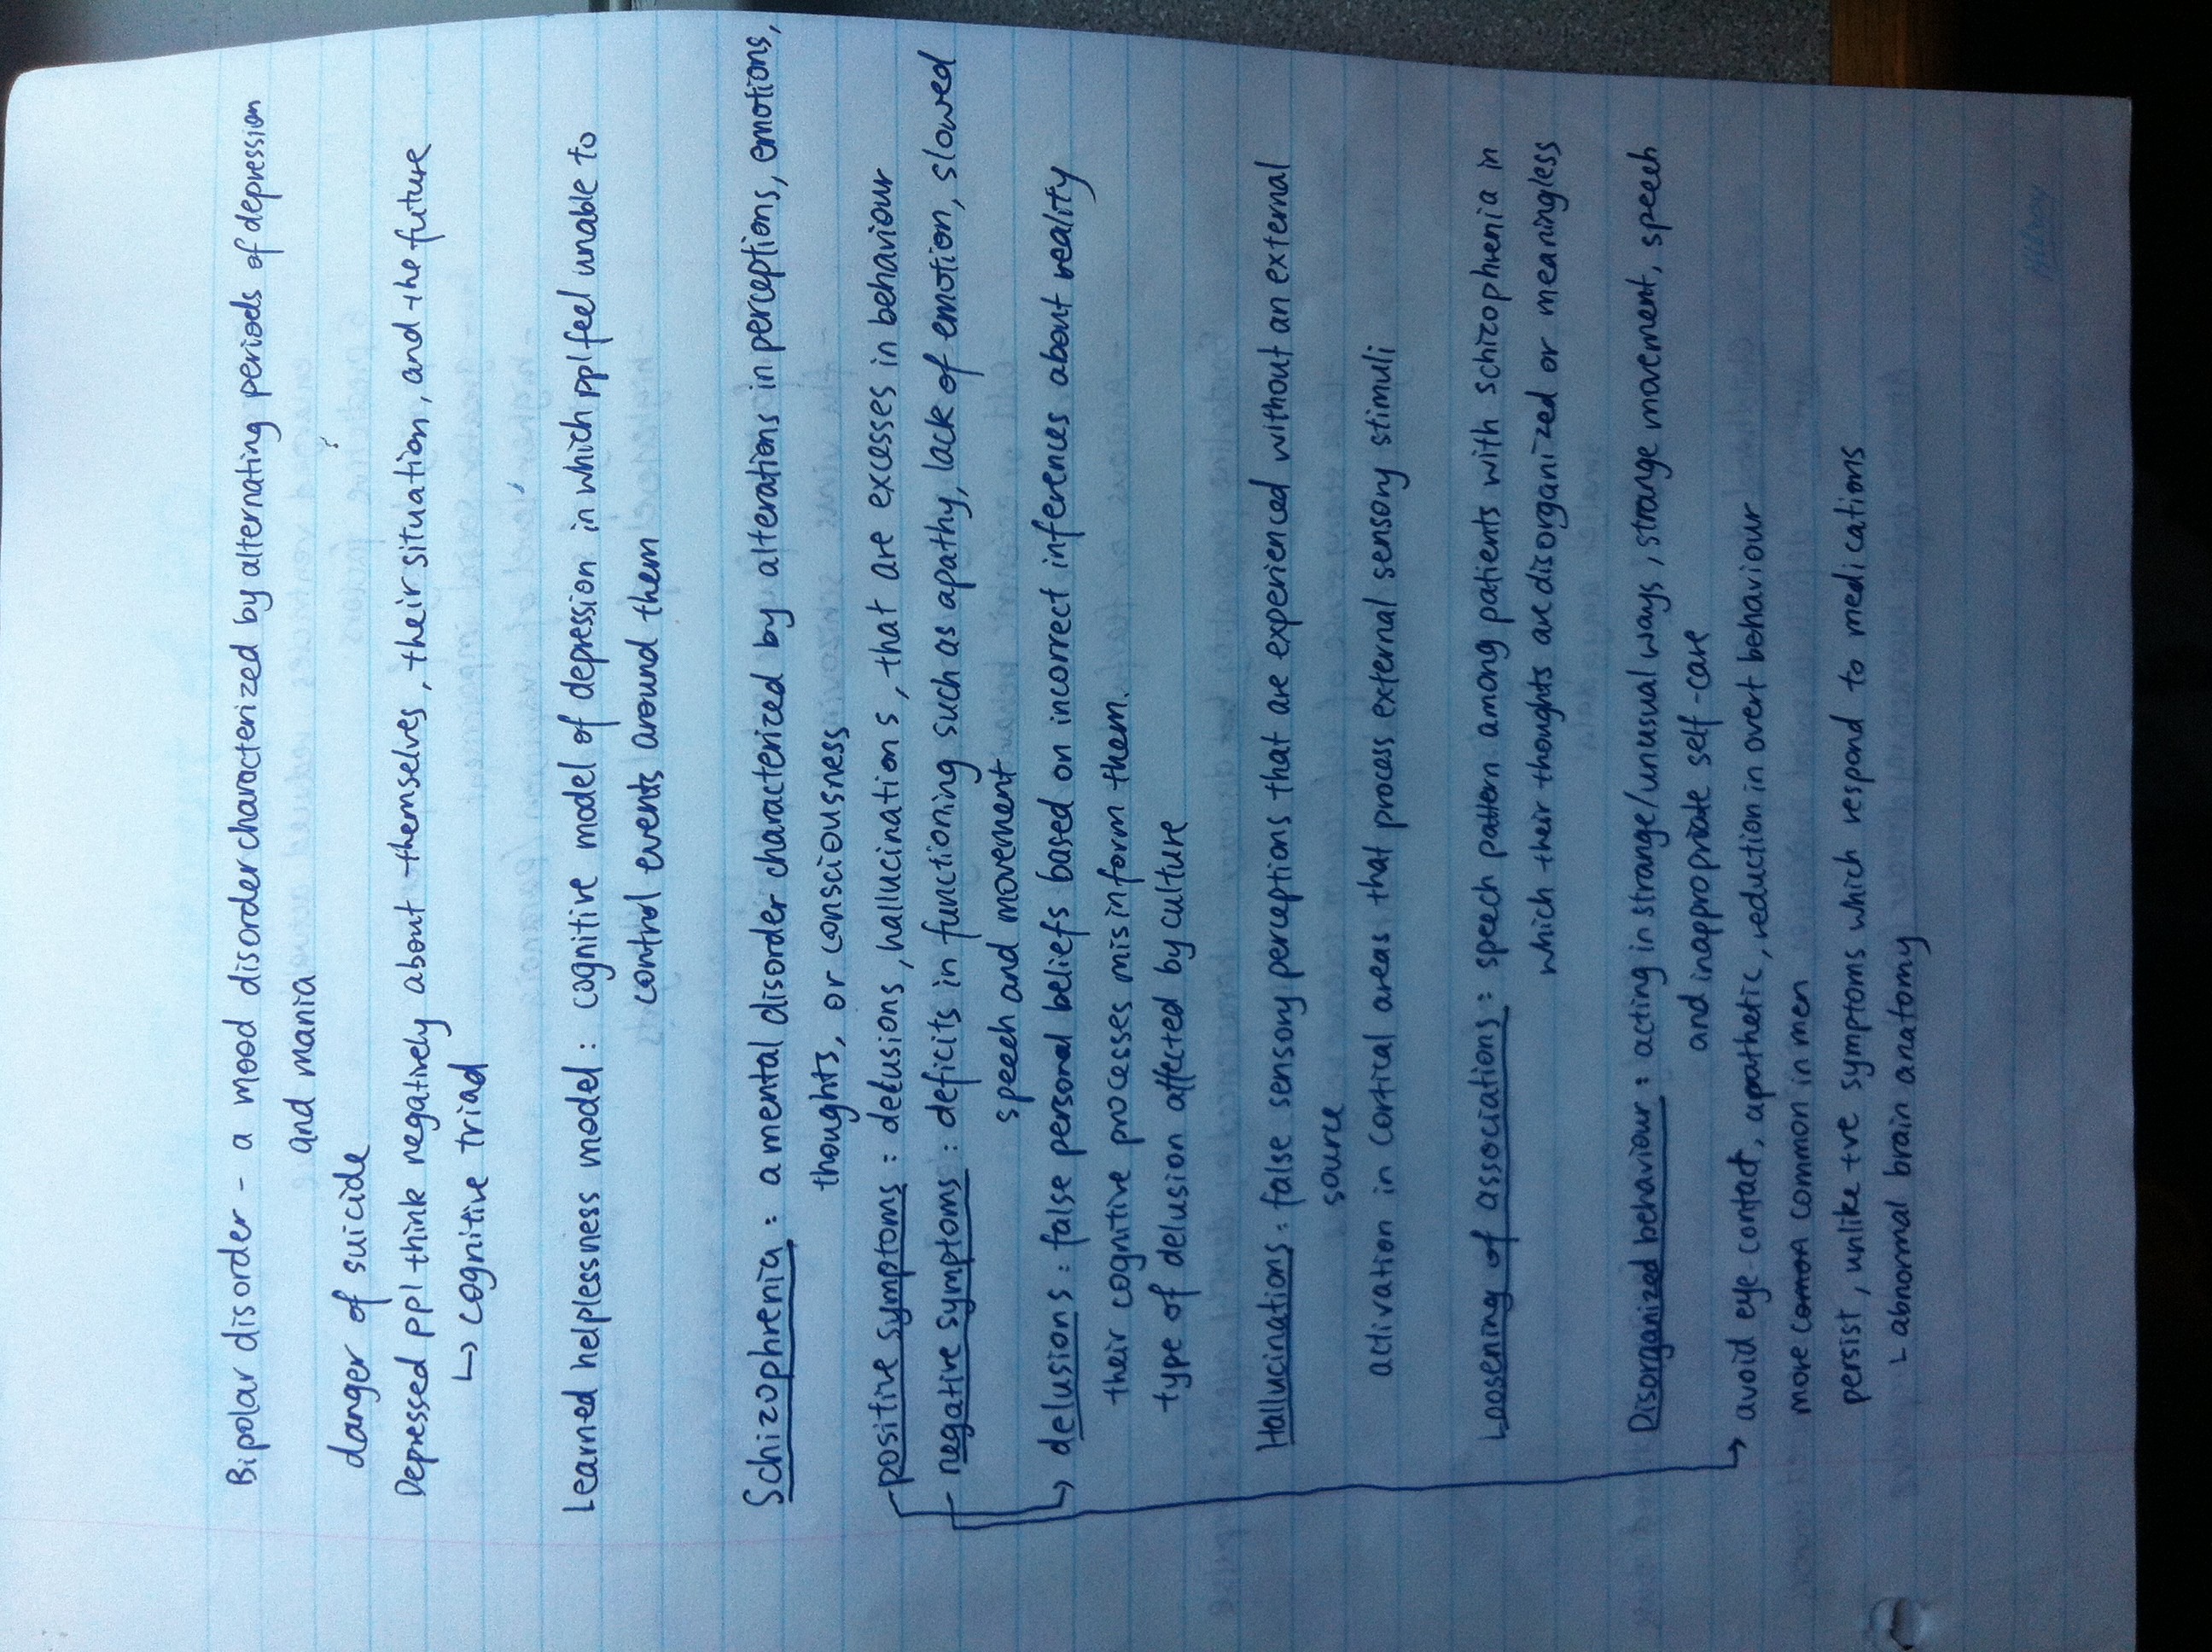 Bipolar disorder - a mood disorder characterized by alternating periods of depression
and mania
danger of suicide
Depressed ppl think negatively about themselves, their situation, and the future
↳ cognitive triad
Learned helplessness model: cognitive model of depression in which ppl feel unable to
control events around them
Schizophrenia: a mental disorder characterized by alterations in perceptions, emotions,
thoughts, or consciousness
positive symptoms: delusions, hallucinations, that are excesses in behaviour
negative symptoms: deficits in functioning such as apathy, lack of emotion, slowed
speech and movement
↳ delusions: false personal beliefs based on incorrect inferences about reality
their cognitive processes misinform them.
type of delusion affected by culture
Hallucinations: false sensory perceptions that are experienced without an external
source
activation in cortical areas that process external sensory stimuli
Loosening of associations: speech pattern among patients with schizophrenia in
which their thoughts are disorganized or meaningless
Disorganized behaviour: acting in strange/unusual ways, strange movement, speech
and inappropriate self-care
↳ avoid eye contact, apathetic, reduction in overt behaviour
more common common in men
persist, unlike +ve symptoms which respond to medications
↳ abnormal brain anatomy